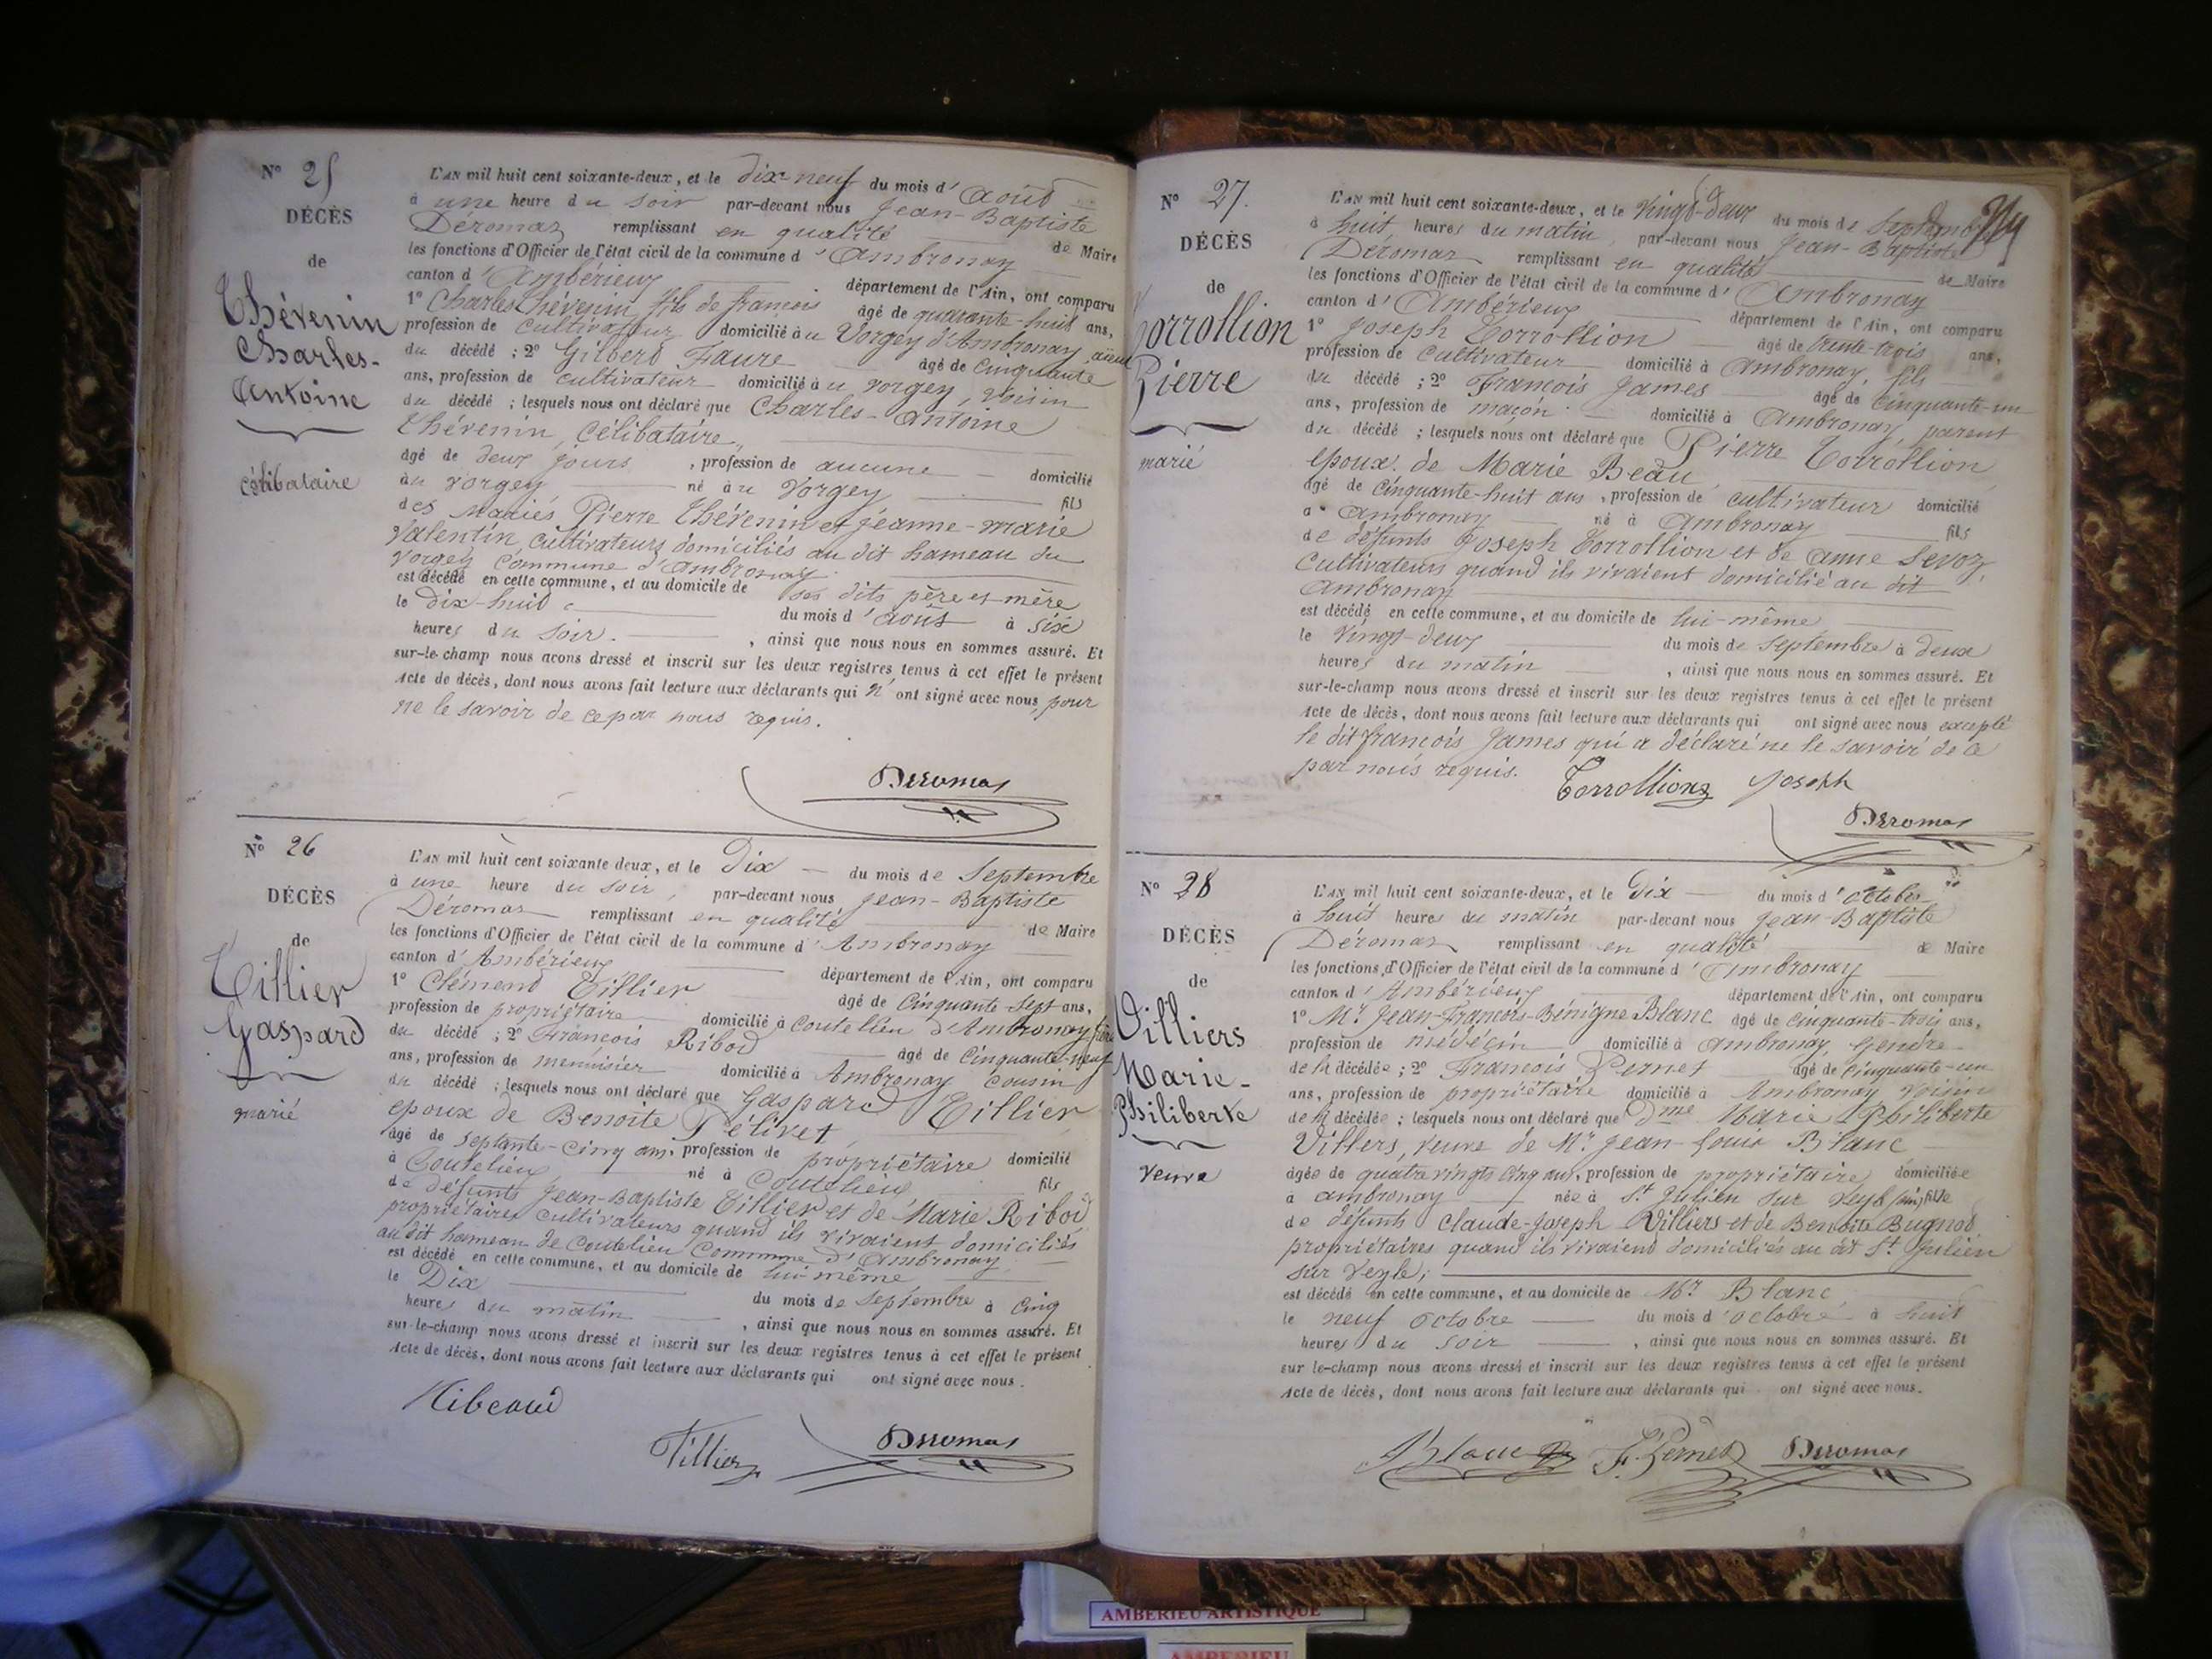 N° 25
DÉCÈS
de
Thévenin
Charles-
Antoine
célibataire
L'AN mil huit cent soixante-deux, et le dix-neuf du mois d'août
à une heure du soir par-devant nous Jean-Baptiste
Déromas remplissant en qualité de Maire
les fonctions d'Officier de l'état civil de la commune d'Ambronay
canton d'Ambérieux département de l'Ain, ont comparu
1° Charles Thévenin fils de françois âgé de quarante-huit ans,
profession de cultivateur domicilié au Vorgey d'Ambronay, aïeul
du décédé ; 2° Gilbert Faure âgé de cinquante
ans, profession de cultivateur domicilié au vorgey, voisin
du décédé ; lesquels nous ont déclaré que Charles-Antoine
Thévenin, célibataire,
âgé de deux jours , profession de aucune domicilié
au vorgey né au Vorgey fils
des mariés Pierre Thévenin et jeanne-marie
Valentin, cultivateurs domiciliés au dit hameau du
Vorgey commune d'Ambronay
est décédé en cette commune, et au domicile de ses dits père et mère
le dix-huit du mois d'août à six
heures du soir. , ainsi que nous nous en sommes assuré. Et
sur-le-champ nous avons dressé et inscrit sur les deux registres tenus à cet effet le présent
Acte de décès, dont nous avons fait lecture aux déclarants qui n'ont signé avec nous, pour
ne le savoir de ce par nous requis.
Deromas
N° 26
DÉCÈS
de
Tillier
Gaspard
marié
L'AN mil huit cent soixante deux, et le Dix du mois de Septembre
à une heure du soir, par-devant nous Jean-Baptiste
Déromas remplissant en qualité de Maire
les fonctions d'Officier de l'état civil de la commune d'Ambronay
canton d'Ambérieux département de l'Ain, ont comparu
1° Clément Tillier âgé de Cinquante-Sept ans,
profession de propriétaire domicilié à Coutelieu d'Ambronay, frère
du décédé ; 2° François Ribod âgé de Cinquante-neuf
ans, profession de menuisier domicilié à Ambronay cousin
du décédé ; lesquels nous ont déclaré que Gaspard Tillier
epoux de Benoite Pélivet
âgé de septante-cinq ans, profession de propriétaire domicilié
à Coutelieu né à Coutelieu fils
de défunts Jean-Baptiste Tillier et de Marie Ribod
propriétaires cultivateurs quand ils vivaient domiciliés
au dit hameau de Coutelieu Commune d'Ambronay.
est décédé en cette commune, et au domicile de lui-même
le Dix du mois de Septembre à Cinq
heures du matin , ainsi que nous nous en sommes assuré. Et
sur-le-champ nous avons dressé et inscrit sur les deux registres tenus à cet effet le présent
Acte de décès, dont nous avons fait lecture aux déclarants qui ont signé avec nous.
Ribeaud
Tillier
Deromas
N° 27.
DÉCÈS
de
Torrollion
Pierre
marié
L'AN mil huit cent soixante-deux, et le Vingt-deux du mois de Septembre
à huit heures du matin, par-devant nous Jean-Baptiste
Déromas remplissant en qualité de Maire
les fonctions d'Officier de l'état civil de la commune d'Ambronay
canton d'Ambérieux département de l'Ain, ont comparu
1° Joseph Torrollion âgé de trente-trois ans,
profession de cultivateur domicilié à Ambronay, fils
du décédé ; 2° François James âgé de Cinquante-un
ans, profession de maçon domicilié à Ambronay, parent
du décédé ; lesquels nous ont déclaré que Pierre Torrollion
epoux de Marie Beau
âgé de cinquante-huit ans , profession de cultivateur domicilié
à Ambronay né à Ambronay fils
de défunts Joseph Torrollion et de anne Sevoz,
Cultivateurs quand ils vivaient domicilié au dit
Ambronay
est décédé en cette commune, et au domicile de lui-même
le Vingt-deux du mois de Septembre à deux
heures du matin , ainsi que nous nous en sommes assuré. Et
sur-le-champ nous avons dressé et inscrit sur les deux registres tenus à cet effet le présent
Acte de décès, dont nous avons fait lecture aux déclarants qui ont signé avec nous excepté
le dit françois James qui a déclaré ne le savoir de ce
par nous requis.
Torrollion Joseph
Deromas
N° 28
DÉCÈS
de
Villiers
Marie-
Philiberte
veuve
L'AN mil huit cent soixante-deux, et le Dix du mois d'octobre
à huit heures du matin par-devant nous Jean-Baptiste
Déromas remplissant en qualité de Maire
les fonctions d'Officier de l'état civil de la commune d'Ambronay
canton d'Ambérieux département de l'Ain, ont comparu
1° Mr. Jean-François-Bénigne Blanc âgé de cinquante-trois ans,
profession de médecin domicilié à Ambronay, Gendre
de la décédée ; 2° François Pernet âgé de Cinquante-un
ans, profession de propriétaire domicilié à Ambronay voisin
de la décédée ; lesquels nous ont déclaré que Dme Marie Philiberte
Villiers, veuve de Mr. Jean-Louis Blanc
âgée de quatre vingts cinq ans, profession de propriétaire domiciliée
à ambronay née à St. Julien sur Veyle (ain) fille
de défunts Claude-Joseph Villiers et de Benoîte Bugnod
propriétaires quand ils vivaient domiciliés au dit St. Julien
sur Veyle;
est décédé en cette commune, et au domicile de Mr. Blanc
le neuf octobre du mois d'octobre à huit
heures du soir , ainsi que nous nous en sommes assuré. Et
sur le-champ nous avons dressé et inscrit sur les deux registres tenus à cet effet le présent
Acte de décès, dont nous avons fait lecture aux déclarants qui ont signé avec nous.
Blanc F. Pernet Deromas
AMBERIEU ARTISTIQUE
AMBERIEU